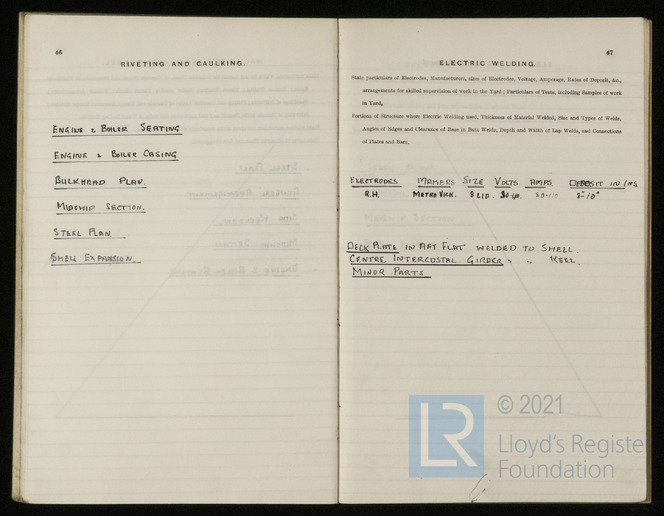 46
RIVETING AND CAULKING.
ENGINE & BOILER SEATING
ENGINE & BOILER CASING
BULKHEAD PLAN.
MIDSHIP SECTION.
STEEL PLAN.
SHELL EXPANSION.
47
ELECTRIC WELDING.
State particulars of Electrodes, Manufacturers, sizes of Electrodes, Voltage, Amperage, Rates of Deposit, &c.,
arrangements for skilled supervision of work in the Yard; Particulars of Tests, including Samples of work
in Yard.
Portions of Structure where Electric Welding used, Thickness of Material Welded, Size and Types of Welds,
Angles of Edges and Clearance of Base in Butt Welds, Depth and Width of Lap Welds, and Connections
of Plates and Bars.
ELECTRODES MAKERS SIZE VOLTS AMPS. DEPOSIT IN/INS
R.H. METRO VICK. 8 &10. 8-10"
DECK PLATE IN AFT FLAT WELDED TO SHELL.
CENTRE INTERCOSTAL GIRDER " " KEEL.
MINOR PARTS
LR
© 2021
Lloyd's Register
Foundation